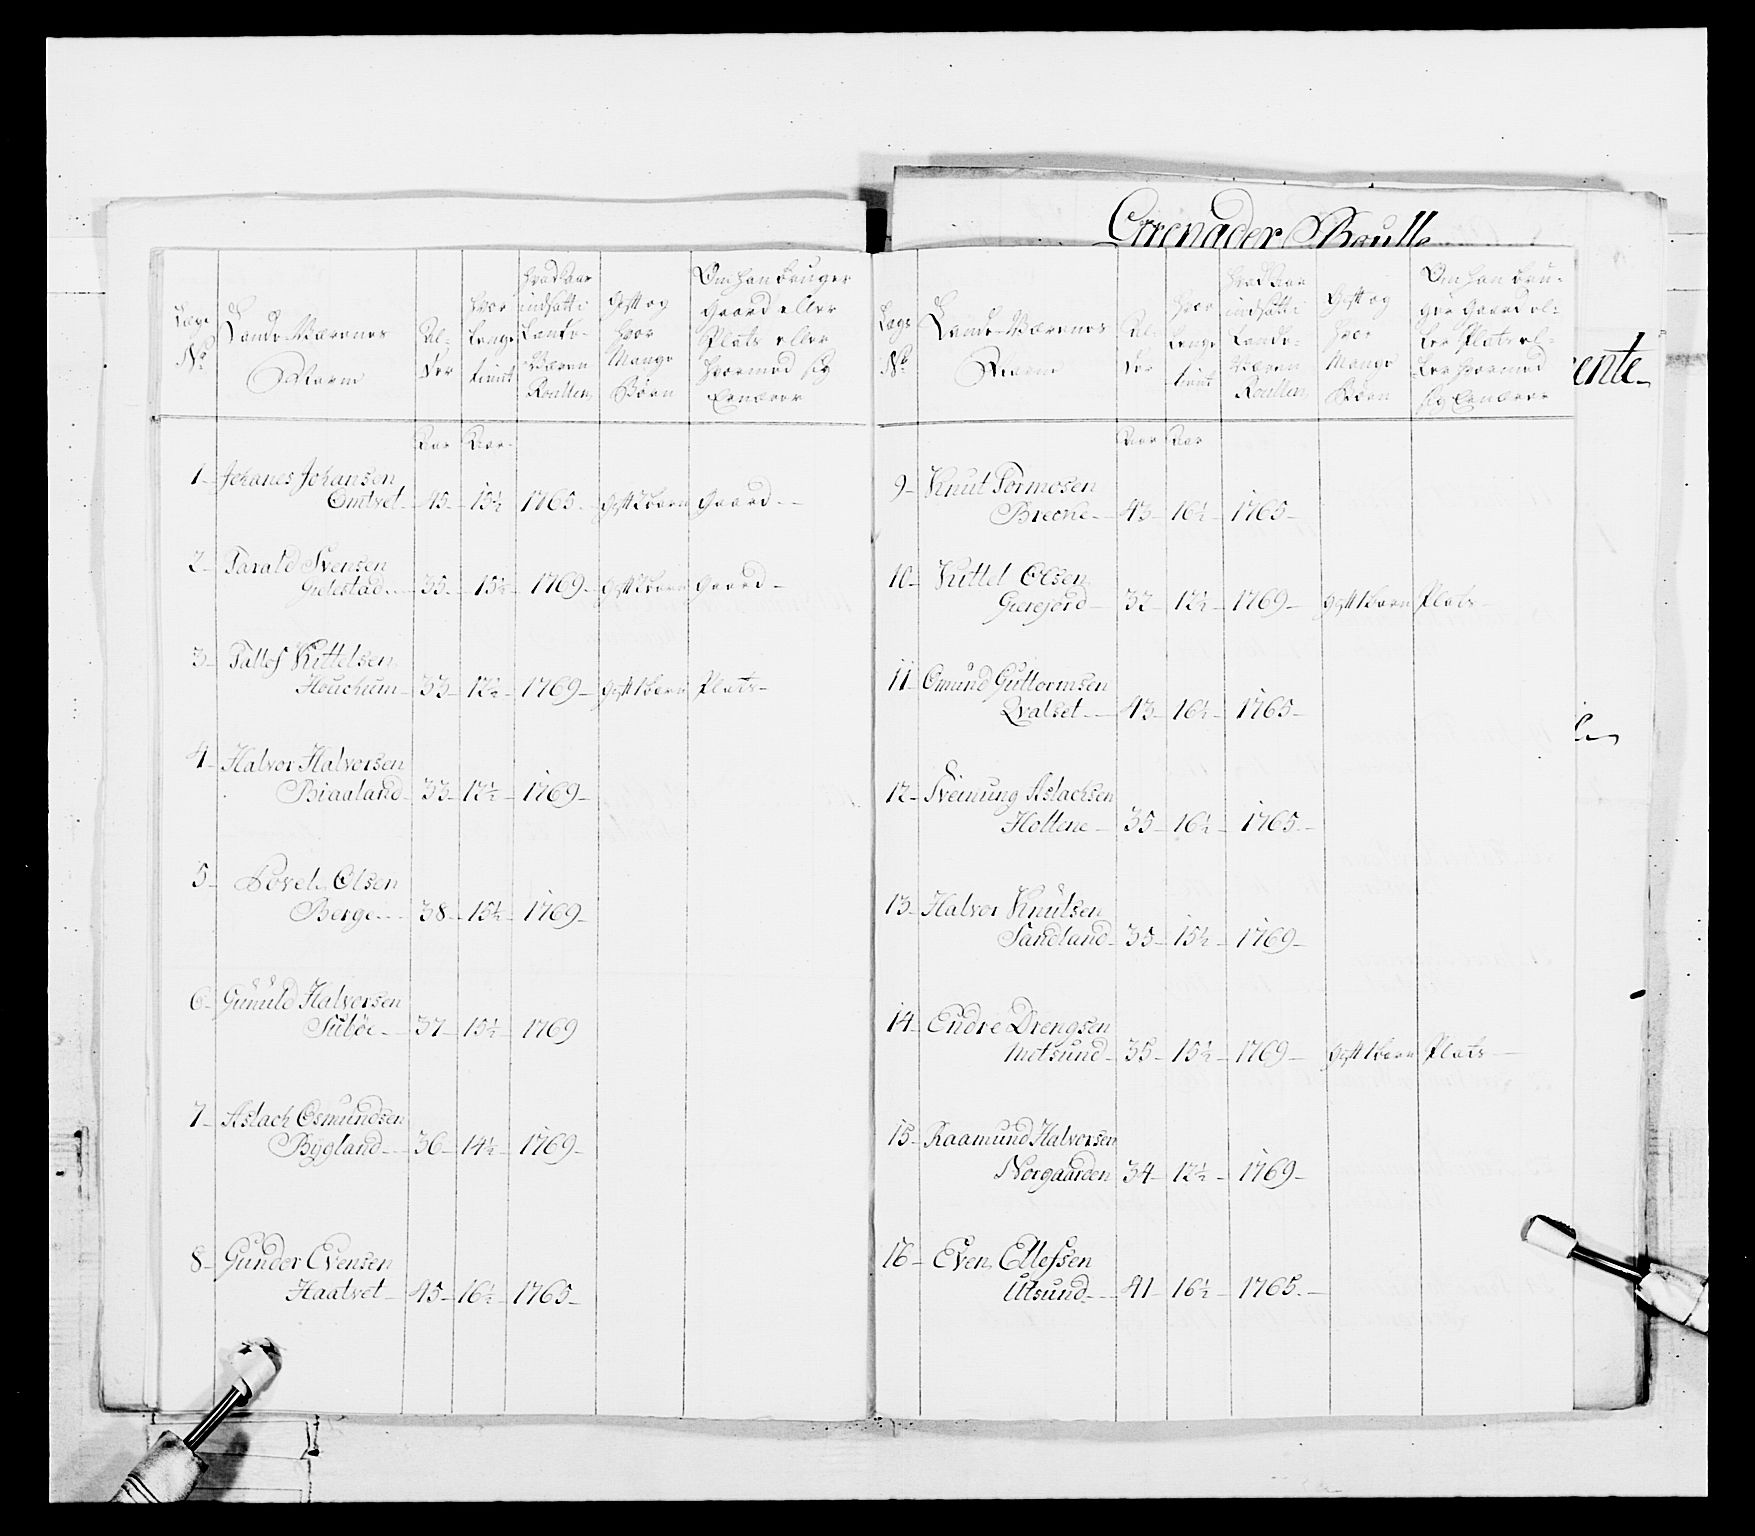 Grenader Roulle
ente
Lægs No
Lande-Værernes Navne
Al-der
hvor lenge tient
hvad Aar indsatt i Lande-Væren Roullen
Gift og hvor Mange Børn
Om han bruger Gaard eller Plats eller hvormed sig Ernærer
Aar Aar
1 Johanes Johansen
Omtvet 45 15½ 1765 Gift 2 børn Gaard
2 Tarald Svensen
Gielestad 35 15½ 1769 Gift 2 børn Gaard
3 Tallef Kittelsen
Houchum 33 12½ 1769 Gift 1 børn Plats
4 Halvor Halvorsen
Biaaland 33 12½ 1769
5 Povel Olsen
Berge 38 15½ 1769
6 Gunuld Halvorsen
Subøe 37 15½ 1769
7 Aslach Osmundsen
Bygland 36 14½ 1769
8 Gunder Evensen
Haatvet 45 16½ 1765
Lægs No
Lande-Værernes Navne
Al-der
hvor lenge tient
hvad Aar indsatt i Lande-Væren Roullen
Gift og hvor Mange Børn
Om han bru-ger Gaard el-ler Plats el-ler hvormed sig Ernærer
Aar Aar
9 Knut Tormosen
Brecke 43 16½ 1765
10 Kittel Olsen
Gierejord 32 12½ 1769 gift 1 børn Plats
11 Omund Guttormsen
Qvalset 43 16½ 1765
12 Sveinung Aslachsen
Holtene 35 16½ 1765
13 Halvor Knutsen
Sandland 35 15½ 1769
14 Endre Drengsen
Motsund 35 15½ 1769 gift 1 børn Plats
15 Raamund Halvorsen
Norgaarden 34 12½ 1769
16 Even Ellefsen
Utsund 41 16½ 1765